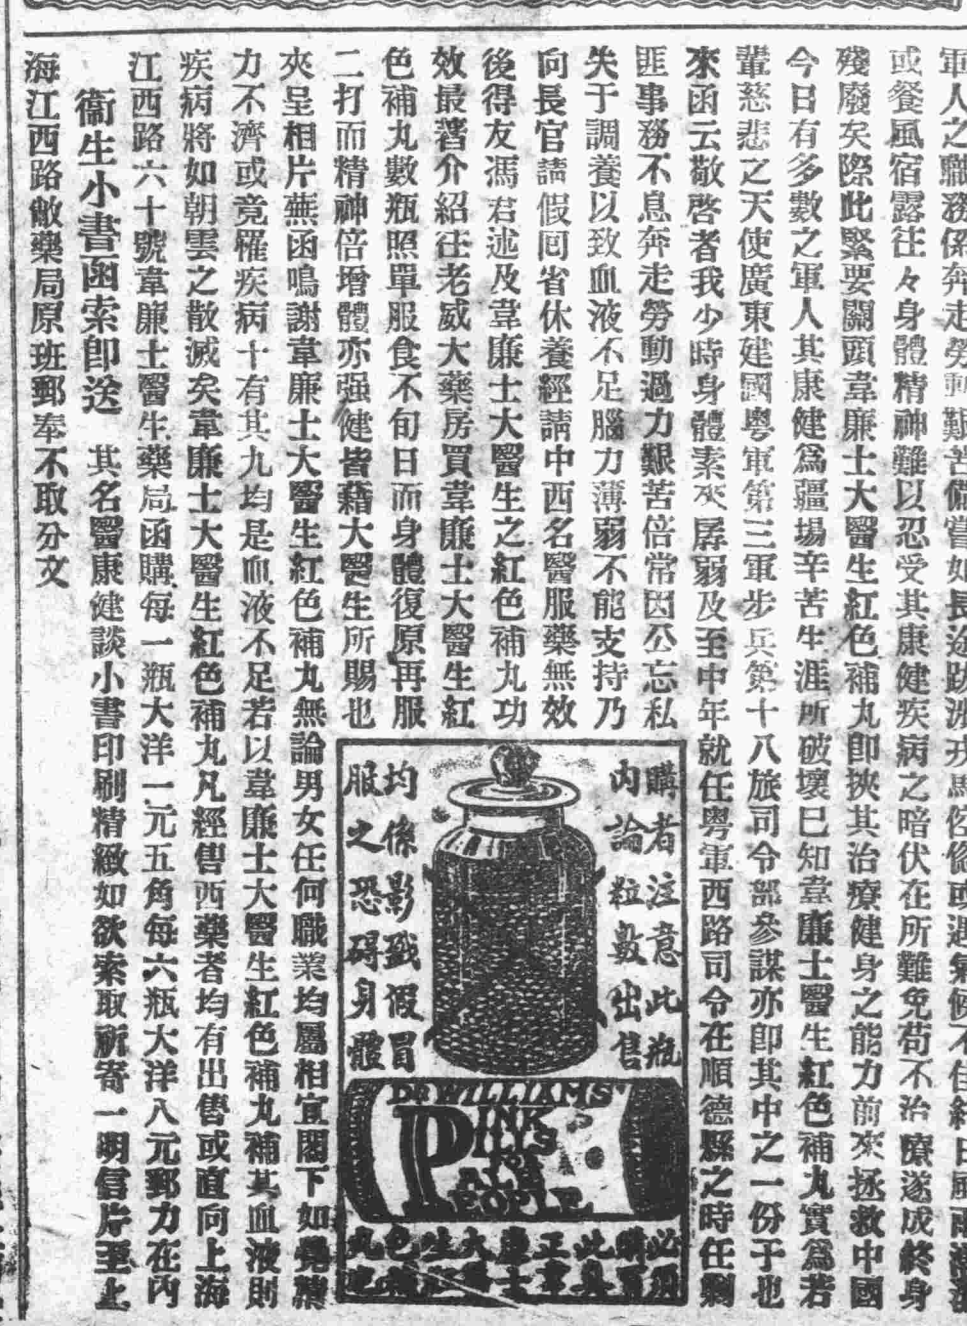 軍人之職務係奔走勞動艱苦備嘗如長途跋涉戎馬倥傯或遇氣候不佳終日風雨
或餐風宿露往々身體精神難以忍受其康健疾病之暗伏在所難免苟不治療遂成終身
殘廢矣際此緊要關頭韋廉士大醫生紅色補丸卽挾其治療健身之能力前來拯救中國
今日有多數之軍人其康健爲疆場辛苦生涯所破壞已知韋廉士醫生紅色補丸實爲若
輩慈悲之天使廣東建國粵軍第三軍步兵第十八旅司令部參謀亦卽其中之一份于也
來函云敬啓者我少時身體素來孱弱及至中年就任粵軍西路司令在順德縣之時任剿
匪事務不息奔走勞動過力艱苦倍常因公忘私
失于調養以致血液不足腦力薄弱不能支持乃
向長官請假囘省休養經請中西名醫服藥無效
後得友馮君述及韋廉士大醫生之紅色補丸功
效最著介紹往老威大藥房買韋廉士大醫生紅
色補丸數瓶照單服食不旬日而身體復原再服
二打而精神倍增體亦强健皆藉大醫生所賜也
夾呈相片蕪函鳴謝韋廉士大醫生紅色補丸無論男女任何職業均屬相宜閣下如覺
力不濟或竟罹疾病十有其九均是血液不足若以韋廉士大醫生紅色補丸補其血液則
疾病將如朝雲之散滅矣韋廉士大醫生紅色補丸凡經售西藥者均有出售或直向上海
江西路六十號韋廉士醫生藥局函購每一瓶大洋一元五角每六瓶大洋八元郵力在內
衞生小書函索卽送 其名醫康健談小書印刷精緻如欲索取祈寄一明信片至上
海江西路敝藥局原班郵奉不取分文
購者注意此瓶
內論粒數出售
均係影戤假冒
服之恐碍身體
DR WILLIAMS
PINK
PILLS
FOR
PALE
PEOPLE